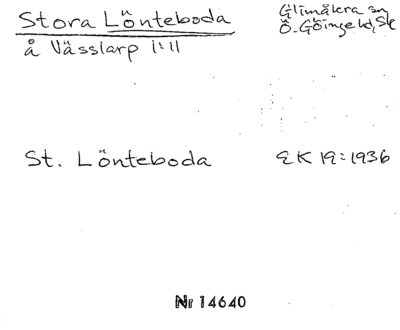 Stora Lönteboda
å Vässlarp 1:11
Glimåkra sn
Ö. Göinge hd, Sk
St. Lönteboda
EK 19:1936
Nr 14640